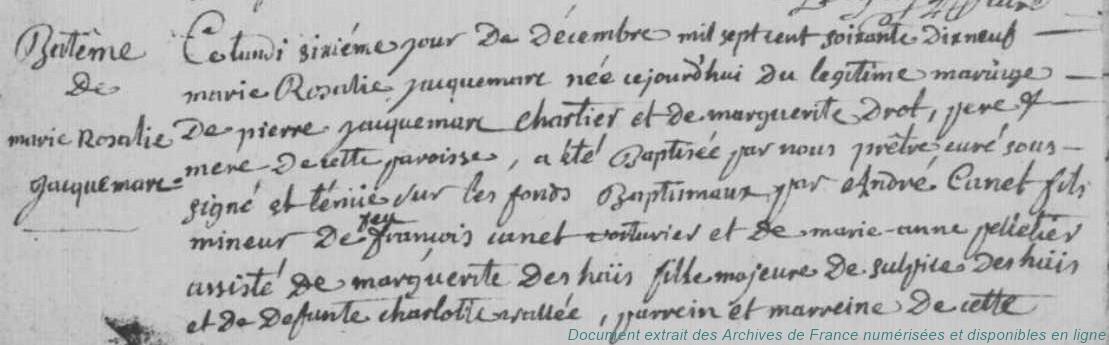 Batême
De
marie Rosalie
Jacquemart
Ce lundi sixiéme jour De Décembre mil sept cent soixante Dixneuf
marie Rosalie jacquemart née cejourd'hui Du legitime mariage
De pierre jacquemart Chartier et de marguerite Drot, pere &
mere De cette paroisse, a été Baptisée par nous prêtre curé sous-
signé et ténüe sur les fonds Baptismaux par André Canet fils
mineur De feu françois canet voiturier et de marie-anne pelletier
assisté de marguerite Deshaïs fille majeure De sulpice Deshaïs
et de Defunte charlotte vallée, parrein et marreine De cette
Document extrait des Archives de France numérisées et disponibles en ligne